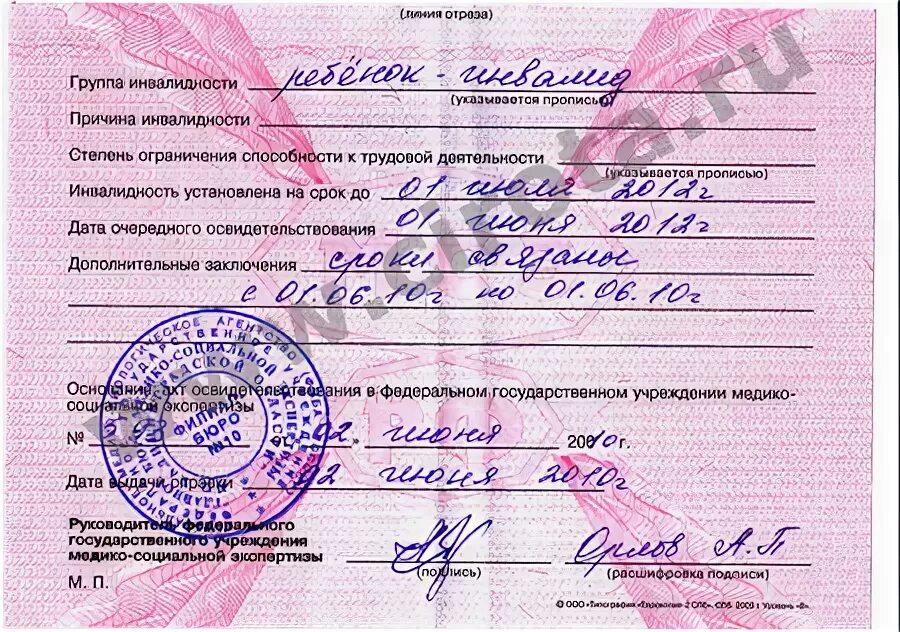 (линия отреза)
Группа инвалидности ребёнок - инвалид
(указывается прописью)
Причина инвалидности
Степень ограничения способности к трудовой деятельности
(указывается прописью)
Инвалидность установлена на срок до 01 июля 2012г
Дата очередного освидетельствования 01 июня 2012г
Дополнительные заключения сроки связаны
с 01.06.10г по 01.06.10г
Основание: акт освидетельствования в федеральном государственном учреждении медико-
социальной экспертизы
№ от 02 " июня 2010г.
Дата выдачи справки 02 июня 2010г
Руководитель федерального
государственного учреждения
медико-социальной экспертизы
Орлов А.П
(подпись)
(расшифровка подписи)
М. П.
ФИЛИАЛ
БЮРО
№10
www.cirota.ru